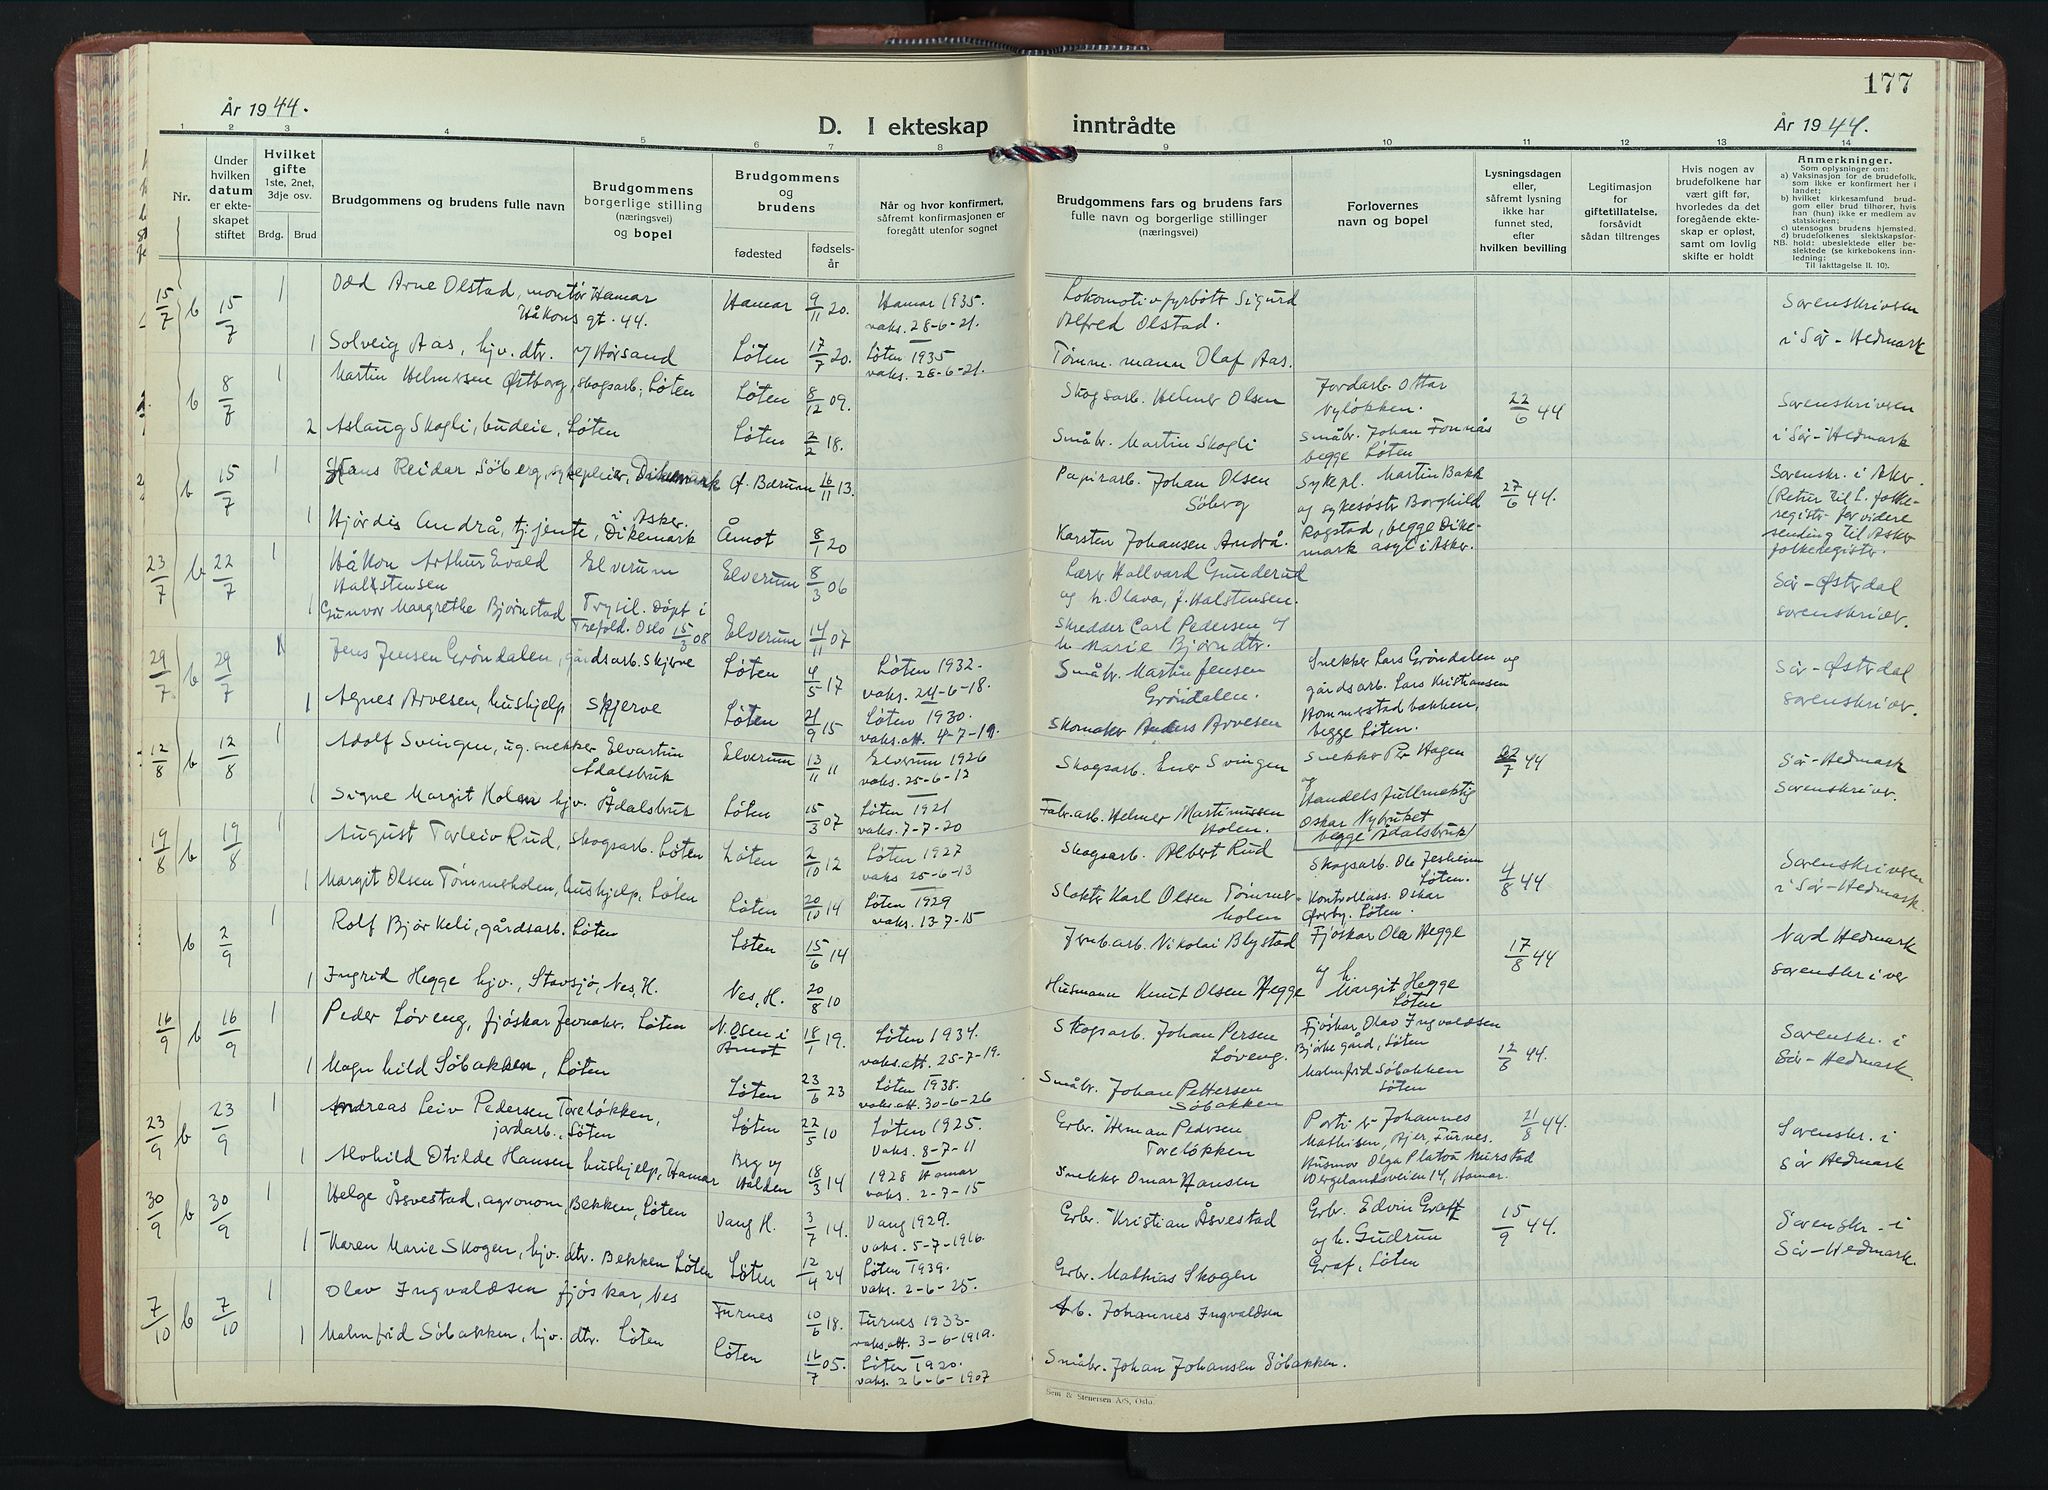 177
År 1944.
D. I ekteskap inntrådte
År 1944.
1 2 3 4 5 6 7 8 9 10 11 12 13 14
Nr.
Under hvilken datum er ekteskapet stiftet
Hvilket gifte 1ste, 2net, 3dje osv.
Brdg. Brud
Brudgommens og brudens fulle navn
Brudgommens borgerlige stilling (næringsvei) og bopel
Brudgommens og brudens
fødested
fødselsår
Når og hvor konfirmert, såfremt konfirmasjonen er foregått utenfor sognet
Brudgommens fars og brudens fars fulle navn og borgerlige stillinger (næringsvei)
Forlovernes navn og bopel
Lysningsdagen eller, såfremt lysning ikke har funnet sted, efter hvilken bevilling
Legitimasjon for giftetillatelse, forsåvidt sådan tiltrenges
Hvis nogen av brudefolkene har vært gift før, hvorledes da det foregående ekteskap er opløst, samt om lovlig skifte er holdt
Anmerkninger.
Som oplysninger om:
a) Vaksinasjon for de brudefolk, som ikke er konfirmert her i landet;
b) hvilket kirkesamfund brudgom eller brud tilhører, hvis han (hun) ikke er medlem av statskirken;
c) utensogns brudens hjemsted.
d) brudefolkenes slektskapsforhold: ubeslektede eller beslektede (se kirkebokens innledning:
NB. Til iakttagelse II. 10).
15/7 b 15/7 1 Odd Arne Olstad, montør Hamar Håkons gt. 44. Hamar 9/11 20. Hamar 1935. vaks. 28-6-21. Lokomotivfyrbøt. Sigurd Alfred Olstad. Sorenskriveren i Sør-Hedmark
1 Solveig Aas, hjv. dtr. Løten 17/7 20. Løten 1935 vaks. 28-6-21. Tømm. mann Olaf Aas.
b 8/7 1 Martin Helmersen Østborg, skogsarb. Løten Løten 8/12 09. Skogsarb. Helmer Olsen Jordarb. Ottar Nyløkken. 22/6 44 Sorenskriveren i Sør-Hedmark
2 Aslaug Skogli, budeie, Løten Løten 2/2 18. Småbr. Martin Skogli Småbr. Johan Fornås begge Løten
b 15/7 1 Hans Reidar Søberg, sykepleier, Dikemark Ø. Bærum 16/11 13. Papirarb. Johan Olsen Søberg Sykepl. Martin Bakk og sykesøstr Borghild Rogstad, begge Dikemark asyl i Asker. 27/6 44. Sorenskr. i Aker. (Retur til L. folkeregistr for videre sending til Asker folkeregister.
1 Hjørdis Andrå, tjjente, i Asker. Dikemark Åmot 8/1 20 Karsten Johansen Andrå.
23/7 b 22/7 1 Håkon Arthur Evald Halstensen Elverum Elverum 8/3 06 Lærer Hallvard Gunderud og h. Olava, f. Halstensen. Sør-Østerdal sorenskriver.
1 Gunvor Margrethe Bjørnstad Trysil. Døpt i Trefold. Oslo 15/3 08 Elverum 14/11 07 Skredder Carl Pedersen og h. Marie Bjørndtr.
29/7 b 29/7 1 Jens Jensen Grøndalen, gårdsarb. Skjerve Løten 4/5 17 Løten 1932- vaks. 24-6-18. Småbr. Martin Jensen Grøndalen. Snekker Lars Grøndalen og gårdsarb. Lars Kristiansen Hommerstadbakken, begge Løten. Sør-Østerdal sorenskriver.
1 Agnes Arvesen, hushjelp Skjerve Løten 21/9 15 Løten 1930. vaks. att. 4-7-19. Skomaker Anders Arvesen
12/8 b 12/8 1 Adolf Svingen, ug. snekker Elvartun Ådalsbruk Elverum 13/11 11 Elverum 1926 vaks. 25-6-12 Skogsarb. Ener Svingen Snekker Per Hagen og Handelsfullmektig Oskar Nybruket begge Ådalsbruk 22/7 44 Sør-Hedmark Sorenskriver.
1 Signe Margit Holen hjv. Ådalsbruk Løten 15/3 07 Løten 1921 vaks. 7-7-20 Fabr.arb. Helmer Martinussen Holen.
19/8 b 19/8 1 August Torleiv Rud, skogsarb. Løten Løten 2/10 12 Løten 1927 vaks 25-6-13 Skogsarb. Albert Rud Skogsarb. Ole Jesheim Løten. 4/8 44 Sorenskriveren i Sør-Hedmark.
1 Margit Olsen Tømmerholen, hushjelp, Løten Løten 20/10 14 Løten 1929 vaks. 13-7-15 Slakter Karl Olsen Tømmerholen Kontrollass. Oskar Østby. Løten.
b 2/9 1 Rolf Bjørkeli, gårdsarb. Løten Løten 15/6 14 Jernb.arb. Nikolai Blystad Fjøskar Ola Hegge og h. Margit Hegge Løten 17/8 44 Nord Hedmark sorenskriver
1 Ingrid Hegge hjv., Stavsjø, Nes, H. Nes, H. 20/8 10 Husmann Knut Olsen Hegge
16/9 b 16/9 1 Peder Løveng, fjøskar Jevnaker. Løten N. Osen i Åmot 18/1 19. Løten 1934. vaks.att. 25-7-19. Skogsarb. Johan Persen Løveng. Fjøskar Olav Ingvaldsen Bjørke gård, Løten Malmfrid Søbakken Løten 12/8 44. Sorenskr. i Sør-Hedmark.
1 Magnhild Søbakken, Løten Løten 23/6 23 Løten 1938. vaks.att. 30-6-26 Småbr. Johan Pettersen Søbakken
23/9 b 23/9 1 Andreas Leiv Pedersen Toreløkken, jordarb., Løten Løten 22/5 10 Løten 1925. Vaks. 8-7-11 Grbr. Herman Pedersen Toreløkken Johannes Mathisen, Bjer, Furnes. Husmor Olga Platou Murstad Wergelandsveien 14, Hamar. 21/8 44. Sorenskr. i Sør Hedmark
1 Alvhild Otilde Hansen hushjelp, Hamar Berg v/ Halden 18/3 14 1928 Hamar vaks. 2-7-15 Snekker Omar Hansen
30/9 b 30/9 1 Helge Åsvestad, agronom, Bekken, Løten Vang H. 3/7 14. Vang 1929. vaks. 5-7-1916. Grbr. Kristian Åsvestad Grbr. Edvin Graff og h. Gudrun Graf, Løten 15/9 44. Sorenskr. i Sør-Hedmark.
1 Karen Marie Skogen, hjv. dtr. Bekken Løten Løten 12/4 24 Løten 1939. vaks. 2-6-25. Grbr. Mathias Skogen
7/10 b 7/10 1 Olav Ingvaldsen fjøskar, Nes Furnes 10/6 18. Furnes 1933- vaks.att. 3-6-1919. Arb. Johannes Ingvaldsen
1 Malmfrid Søbakken, hjv. dtr. Løten Løten 16/7 05. Løten 1920. vaks. 26-6-1907 Småbr. Johan Johansen Søbakken.
Sem & Stenersen A/S, Oslo.